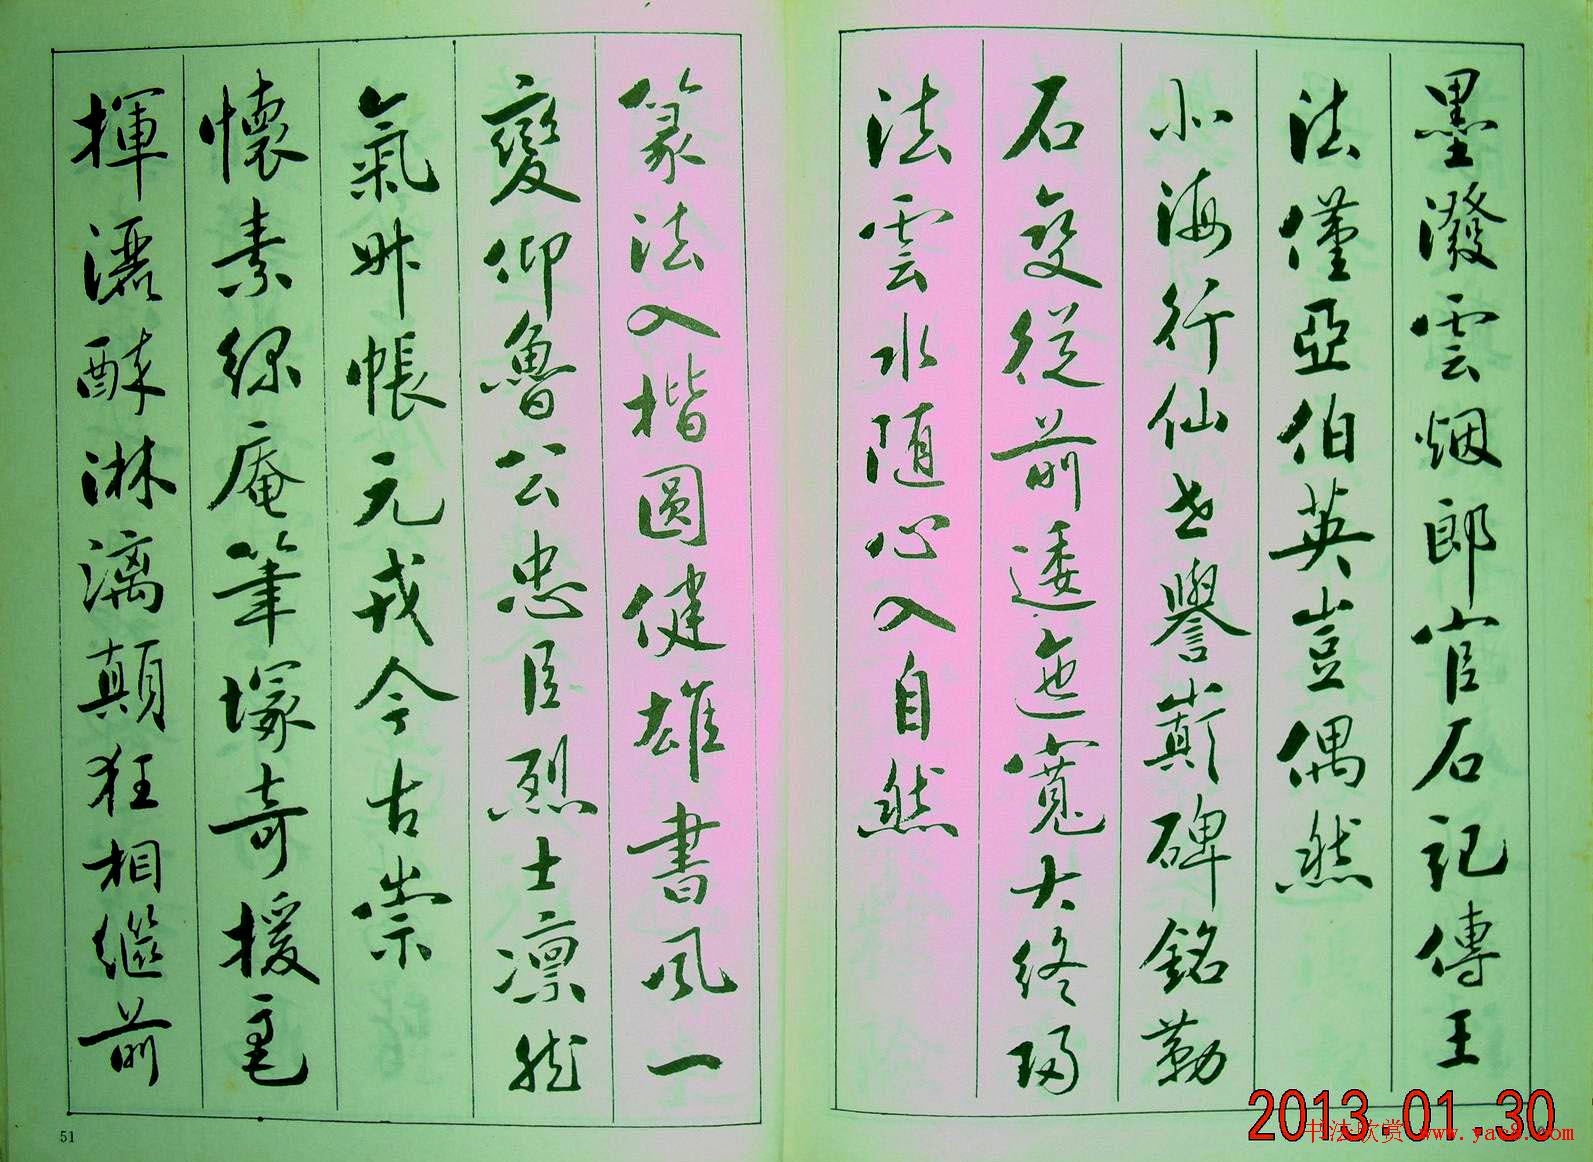 墨潑雲烟郎官石記傳王
法僅亞伯英豈偶然
北海行仙士譽巔碑銘勒
石變從前逶迤寬大終
法雲水隨心入自然
篆法入楷圓健雄書風一
變仰魯公忠臣烈士凛然
氣時帳元戎今古崇
懷素綠庵筆塚奇援毫
揮灑酥淋漓顛狂相繼前
51
2013.01.30
书法欣赏 www.yac8.com